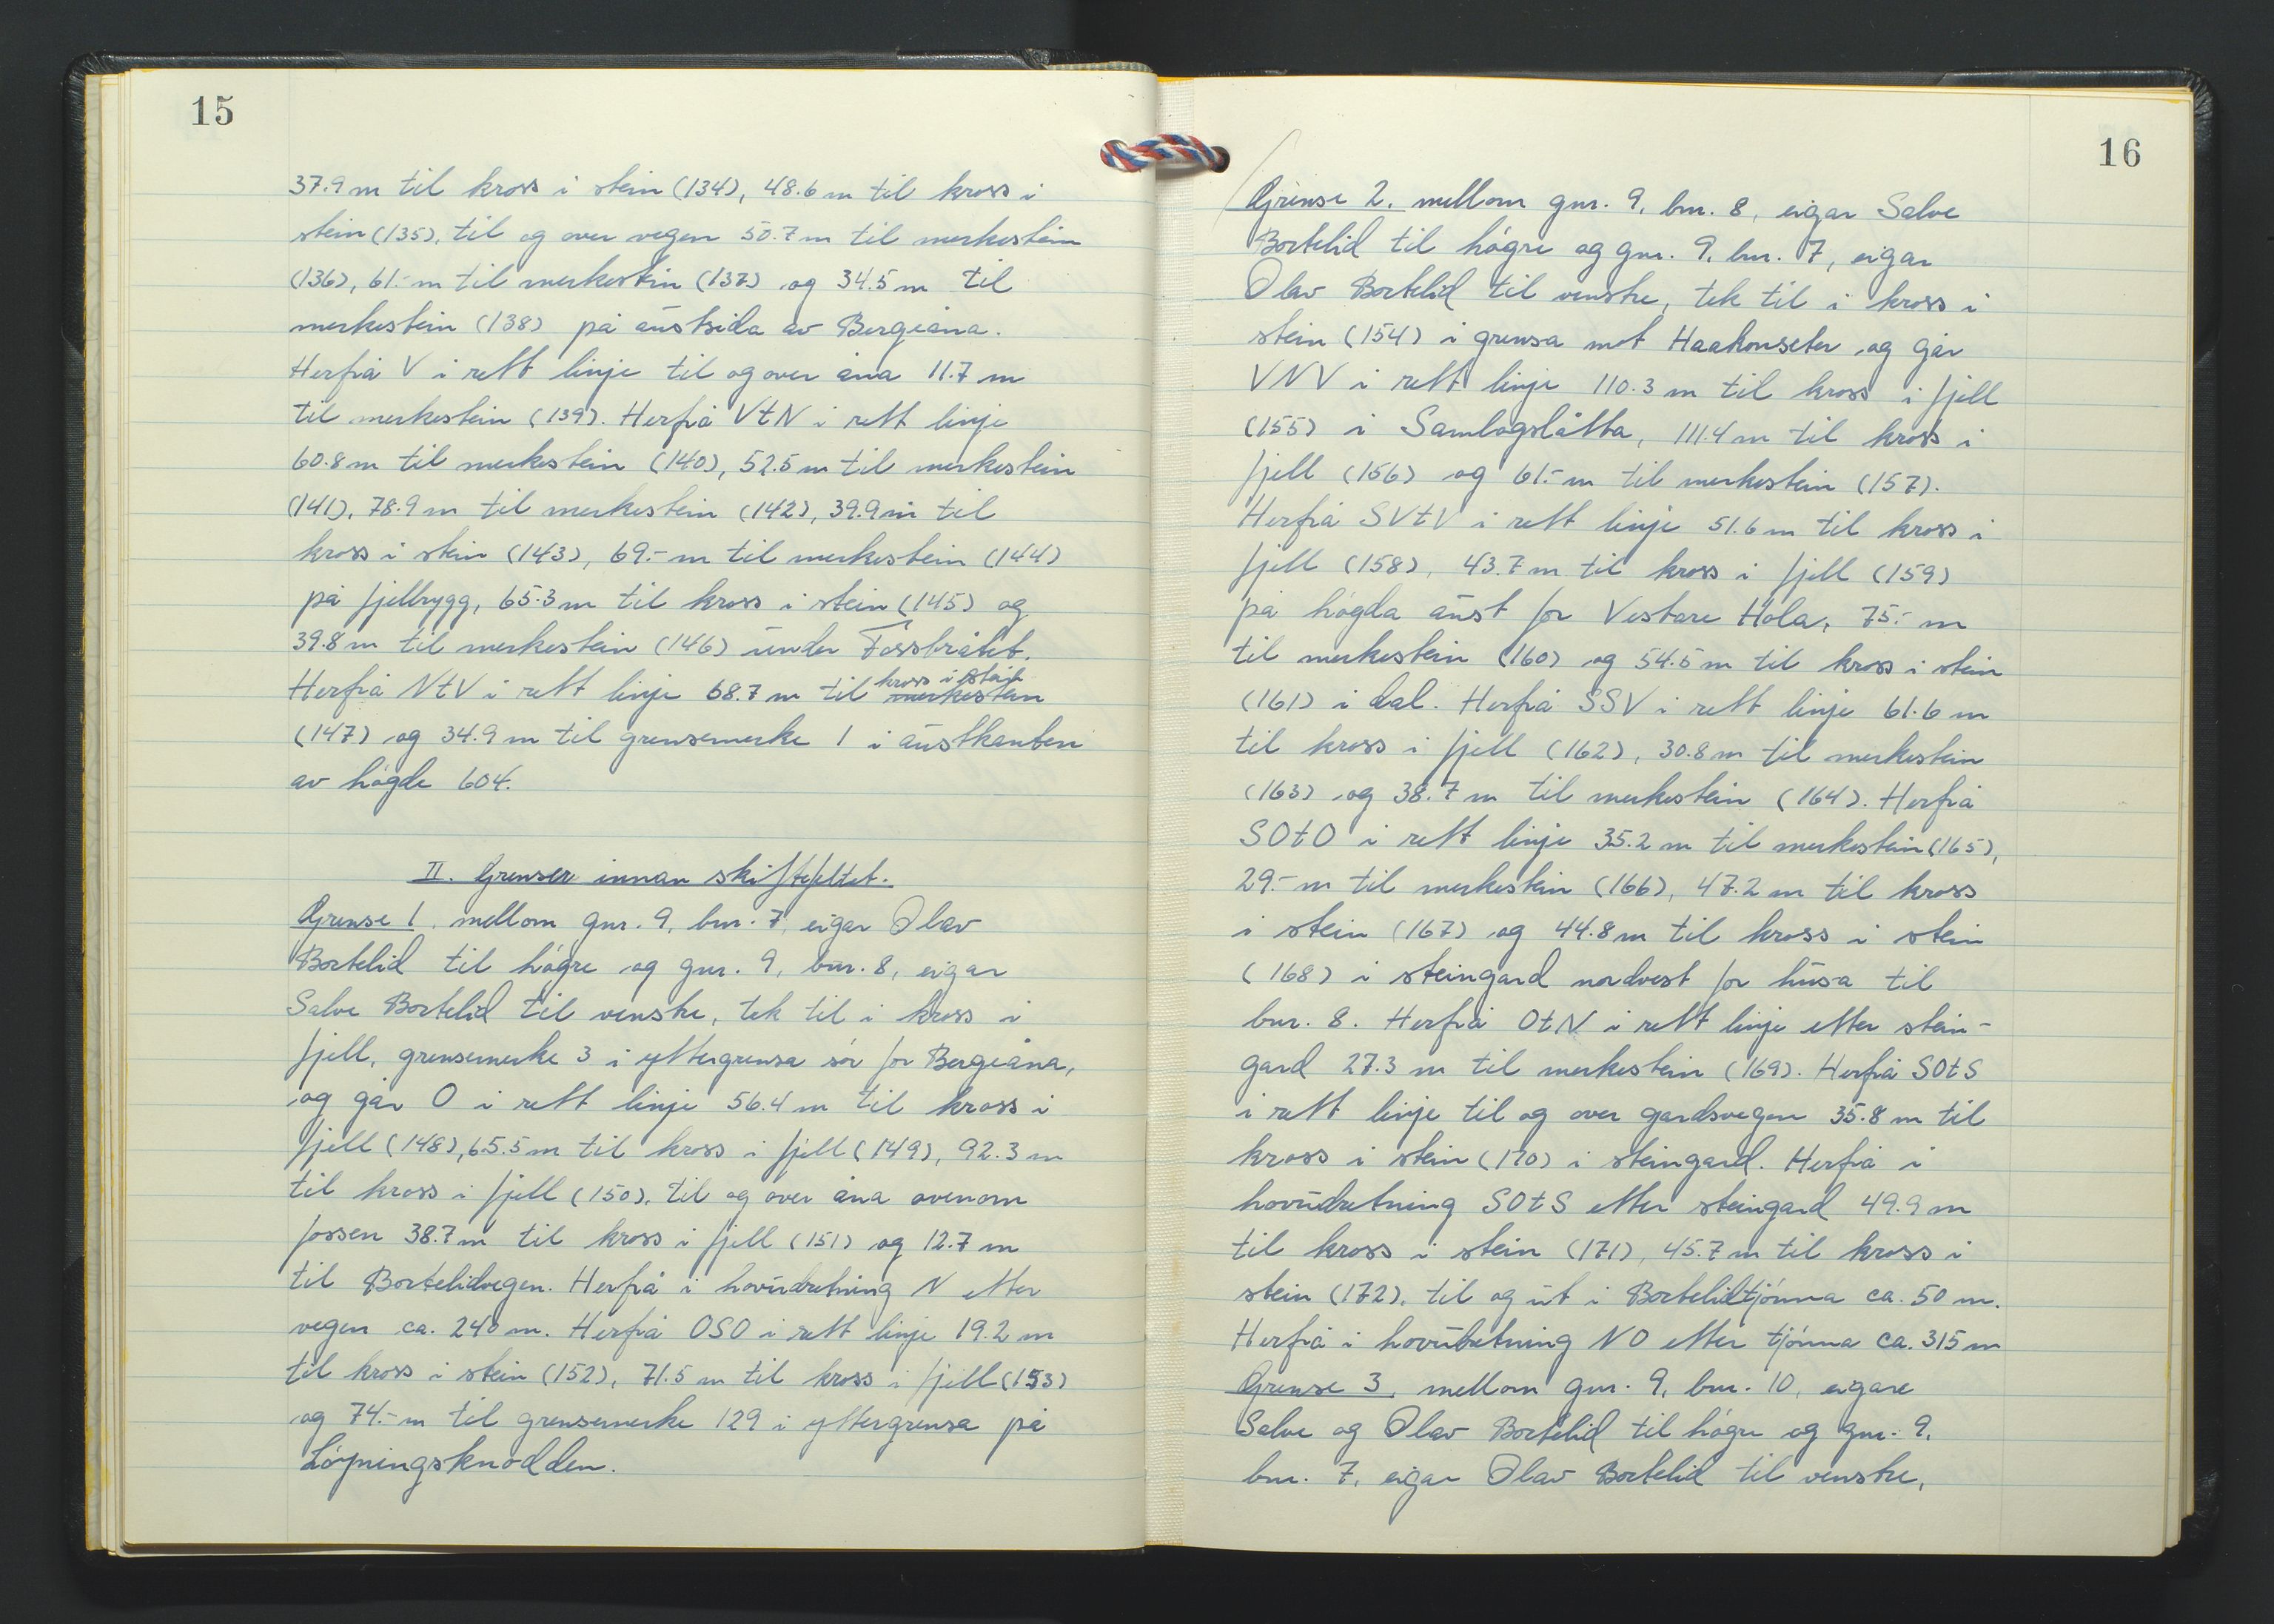 15
37.9 m til kross i stein (134), 48.6 m til kross i
stein (135), til og over vegen 50.7 m til merkestein
(136), 61.- m til merkestein (137) og 34.5 m til
merkestein (138) på austsida av Bergeåna.
Herfrå V i rett linje til og over åna 11.7 m
til merkestein (139). Herfrå VtN i rett linje
60.8 m til merkestein (140), 52.5 m til merkestein
(141), 78.9 m til merkestein (142), 39.9 m til
kross i stein (143), 69.- m til merkestein (144)
på fjellrygg, 65.3 m til kross i stein (145) og
39.8 m til merkestein (146) under Fossbråtet.
Herfrå NtV i rett linje 68.7 m til kross i stein merkestein
(147) og 34.9 m til grensemerke 1 i austkanten
av høgde 604.
II. Grenser innan skiftefeltet.
Grense 1. mellom gnr. 9, bnr. 7, eigar Olav
Bortelid til høgre og gnr. 9, bnr. 8, eigar
Salve Bortelid til venstre, tek til i kross i
fjell, grensemerke 3 i yttergrensa sør for Bergeåna,
og går O i rett linje 56.4 m til kross i
fjell (148), 65.5 m til kross i fjell (149), 92.3 m
til kross i fjell (150), til og over åna ovenom
fossen 38.7 m til kross i fjell (151) og 12.7 m
til Bortelidvegen. Herfrå i hovudretning N etter
vegen ca. 240 m. Herfrå OSO i rett linje 19.2 m
til kross i stein (152), 71.5 m til kross i fjell (153)
og 74.- m til grensemerke 129 i yttergrensa på
Løypningsknodden.
16
Grense 2. mellom gnr. 9, bnr. 8, eigar Salve
Bortelid til høgre og gnr. 9, bnr. 7, eigar
Olav Bortelid til venstre, tek til i kross i
stein (154) i grensa mot Haakonseter og går
VNV i rett linje 110.3 m til kross i fjell
(155) i Samlagslåtta, 111.4 m til kross i
fjell (156) og 61.- m til merkestein (157).
Herfrå SVtV i rett linje 51.6 m til kross i
fjell (158), 43.7 m til kross i fjell (159)
på høgda aust for Vestare Hola, 75.- m
til merkestein (160) og 54.5 m til kross i stein
(161) i dal. Herfrå SSV i rett linje 61.6 m
til kross i fjell (162), 30.8 m til merkestein
(163) og 38.7 m til merkestein (164). Herfrå
SOtO i rett linje 35.2 m til merkestein (165),
29.- m til merkestein (166), 47.2 m til kross
i stein (167) og 44.8 m til kross i stein
(168) i steingard nordvest for husa til
bnr. 8. Herfrå OtN i rett linje etter stein-
gard 27.3 m til merkestein (169). Herfrå SOtS
i rett linje til og over gardsvegen 35.8 m til
kross i stein (170) i steingard. Herfrå i
hovudretning SOtS etter steingard 49.9 m
til kross i stein (171), 45.7 m til kross i
stein (172), til og ut i Bortelidtjønna ca. 50 m.
Herfrå i hovudretning NO etter tjønna ca. 315 m
Grense 3, mellom gnr. 9, bnr. 10, eigare
Salve og Olav Bortelid til høgre og gnr. 9,
bnr. 7, eigar Olav Bortelid til venstre,